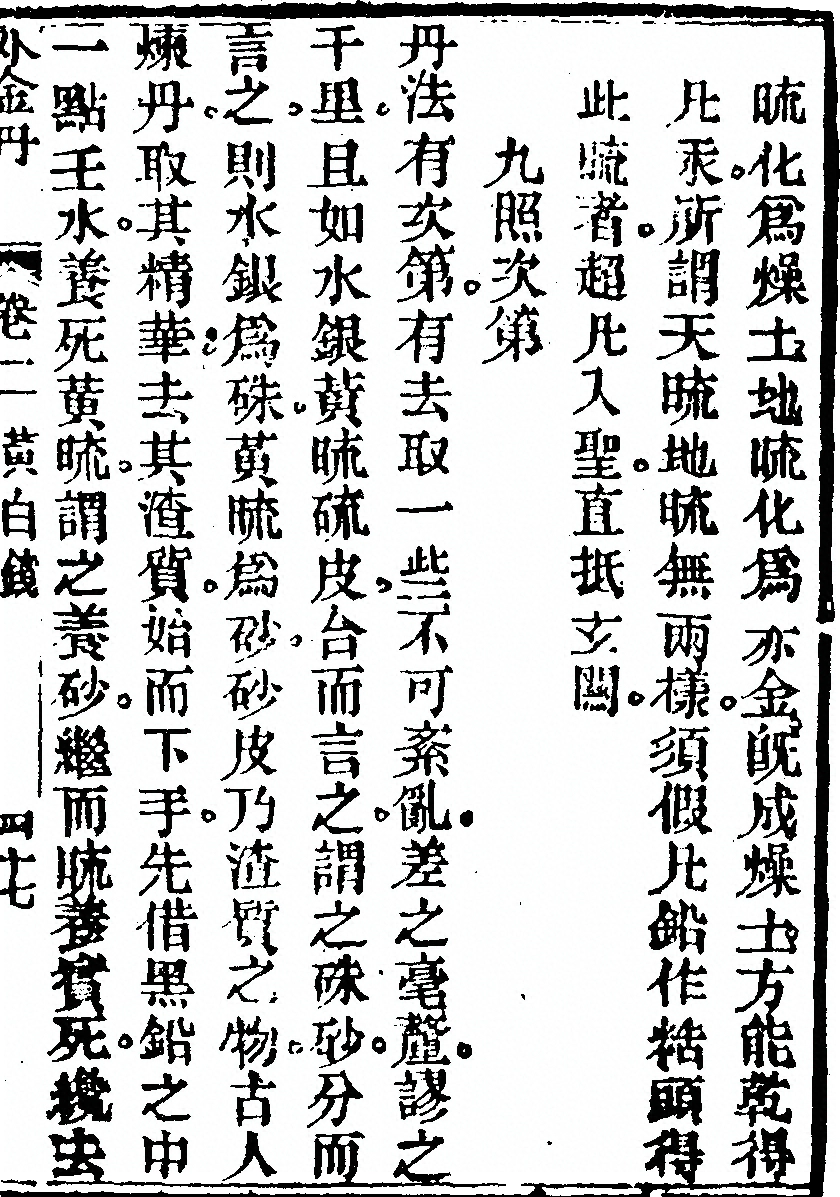 硫化爲燥土地硫化爲赤金旣成燥土方能乾得
凡汞所謂天硫地硫無兩樣須假凡鉛作粘頭得
此硫者超凡入聖直抵玄關
九照次第
丹法有次第有去取一些不可紊亂差之毫釐謬之
千里且如水銀黃硫硫皮合而言之謂之硃砂分而
言之則水銀爲硃黃硫爲砂砂皮乃渣質之物古人
煉丹取其精華去其渣質始而下手先借黑鉛之中
一點壬水養死黃硫謂之養砂繼而硫養實死纔去
外金丹 卷二 黃白鏡 四十七